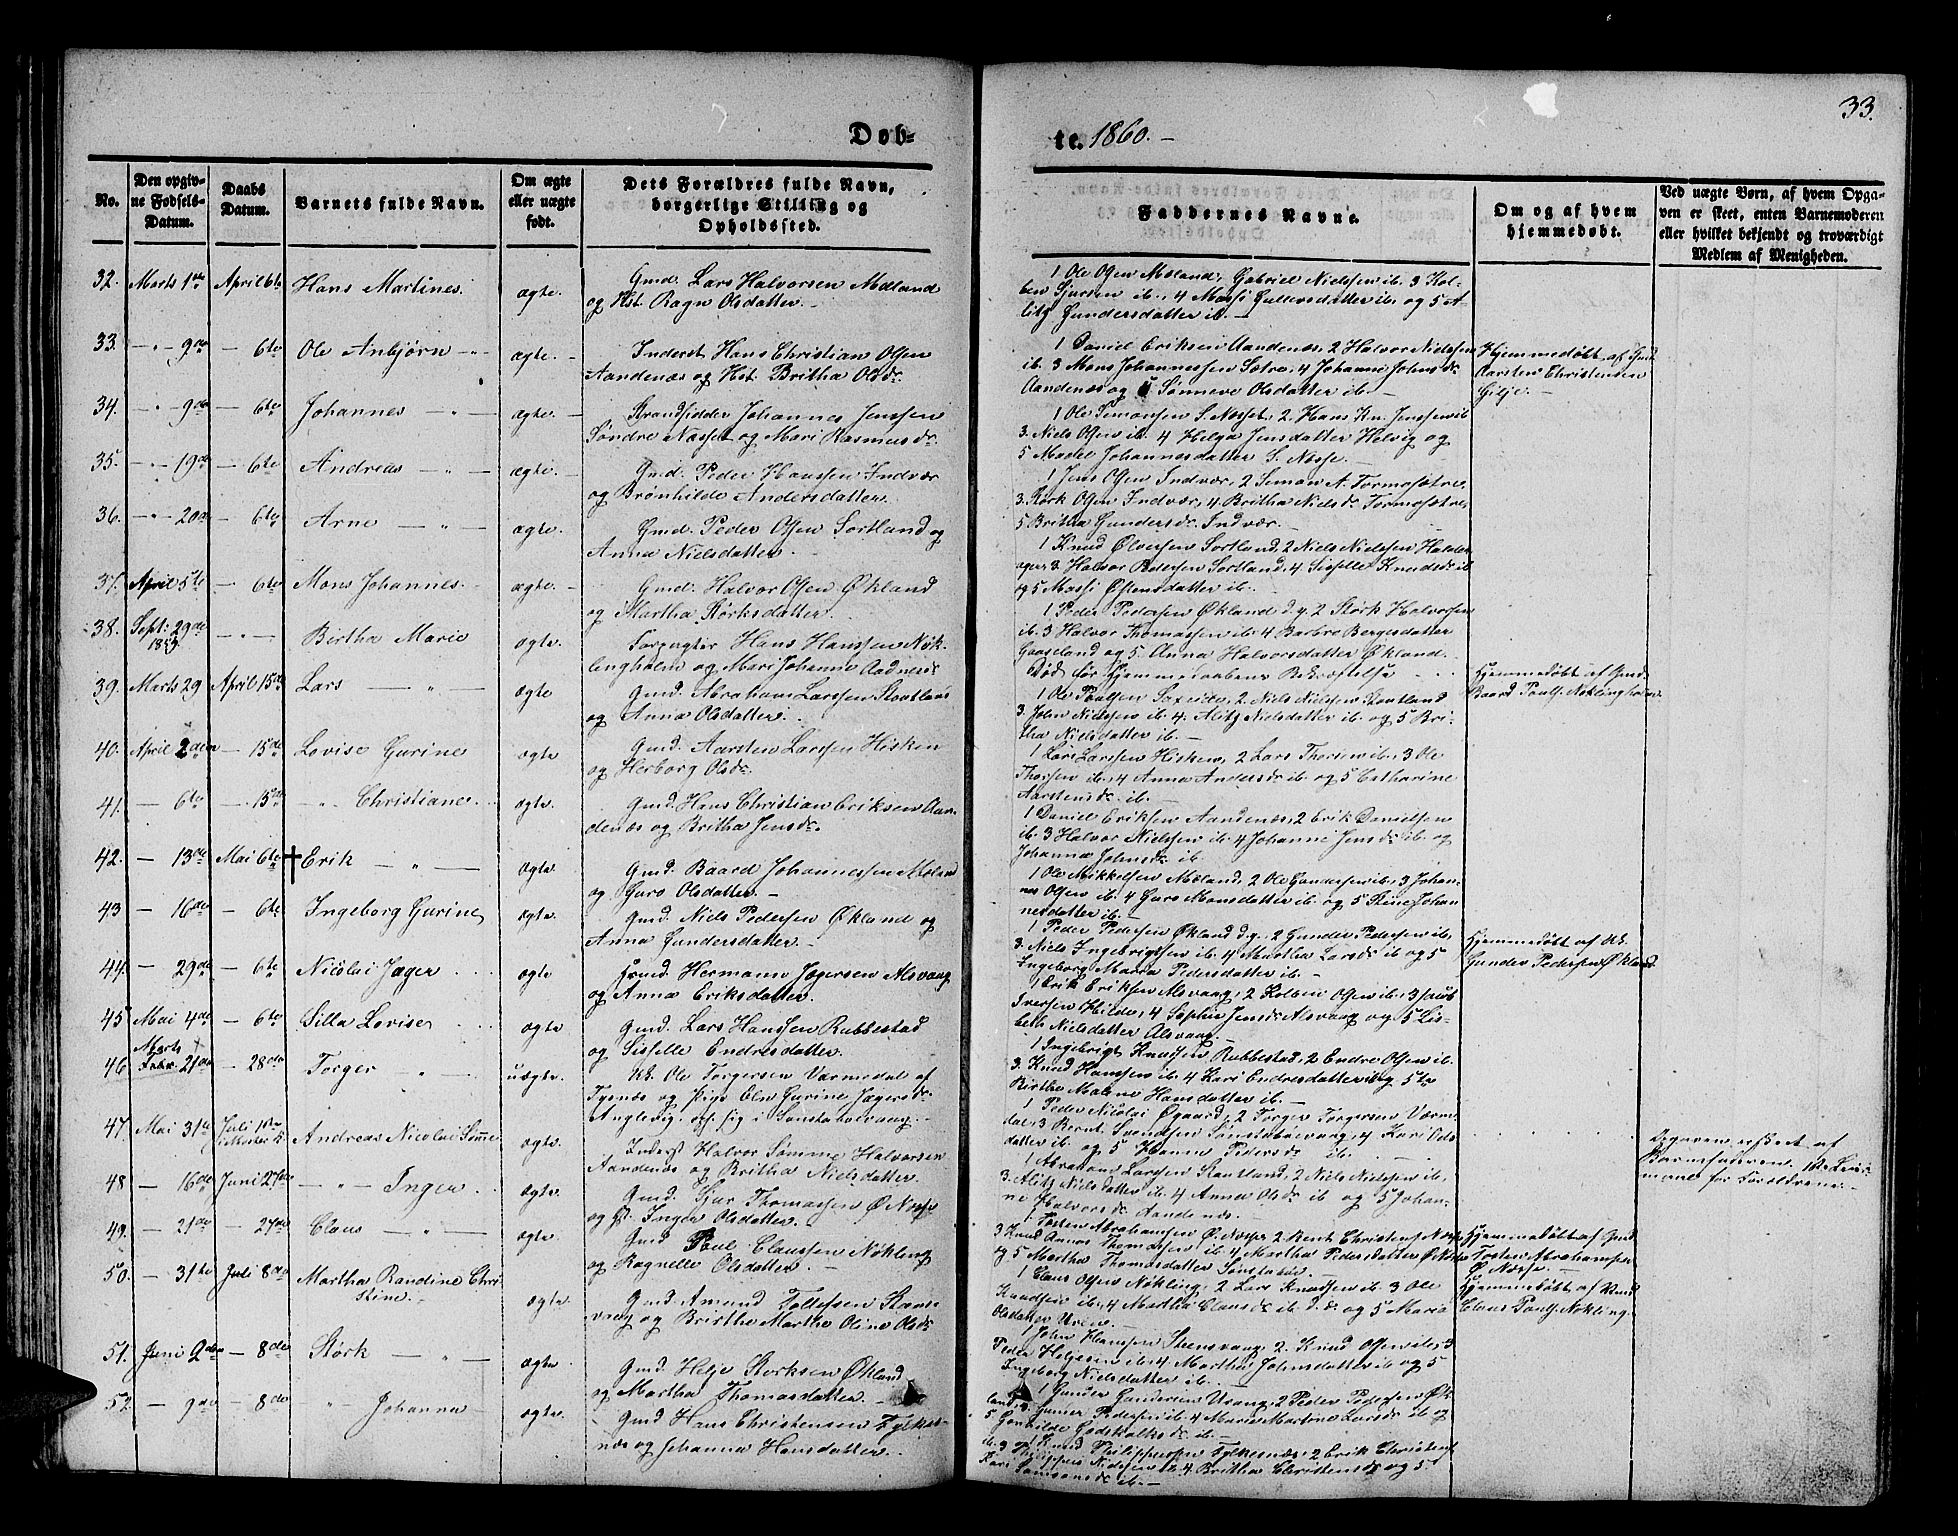 33.
Døb-
te. 1860.-
No.
Den opgiv-
ne Fødsels-
Datum.
Daabs
Datum.
Barnets fulde Navn.
Om ægte
eller uægte
født.
Dets Forældres fulde Navn,
borgerlige Stilling og
Opholdssted.
Faddernes Navne.
Om og af hvem
hjemmedøbt.
Ved uægte Børn, af hvem Opga-
ven er skeet, enten Barnemoderen
eller hvilket bekjendt og troværdigt
Medlem af Menigheden.
32. Marts 1ste April 6te Hans Martines ægte.
Gmd. Lars Halvorsen Møland
og Hst. Ragn Olsdatter.-
1 Ole Olsen Møland, Gabriel Nielsen ib. 3 Kol-
ben Sjursen ib., 4 Massi Gullersdatter ib. og 5 A-
litz Gundersdatter ib.
33. - " - 9de - 6te Ole Anbjørn - " - ægte. -
Inderst Hans Christian Olsen
Aandenæs og Hst. Britha Olsdr.
1 Daniel Eriksen Aandenæs, 2 Halvor Nielssen
ib. 3 Mons Johannessen Sætre, 4 Johanne Johnsdr.
Aandenæs og 5 Sønneve Olsdatter ib. -
Hjemmedøbt af Gmd.
Aarsten Christensen
Gilje. -
34. - " - 9de - 6te Johannes - " - ægte. -
Strandsidder Johannes Jenssen
Søndre Næsset og Mari Rasmusdr.
1 Ole Simonsen S. Nøsset, 2 Hans Kn. Jenssen ib
3. Niels Olsen ib. 4 Helga Jensdatter Helvig og
5 Madel Johannesdatter S. Næsse. -
35. - " - 19de - 6te Andreas - " - ægte.
Gmd. Peder Hanssen Indvær
og Brønhilde Andersdatter.
1 Jens Olsen Indvær, 2 Simon A. Tormosætre,
3. Størk Olsen Indvær, 4 Britha Nielsdr. Tormosætre,
5 Britha Gundersdr. Indvær. -
36. - " - 20de - 6te Arne - " - ægte.
Gmd. Peder Olsen Sortland og
Anna Nielsdatter. -
1 Knud Ølversen Sortland, 2 Niels Nielssen Halder-
3 Halvor Pedersen Sortland, 4 Sisselle Knudsdr ib
og 5 Massi Østensdatter ib. -
37. April 5te - 6te Mons Johannes - ægte. -
Gmd. Halvor Olsen Økland
og Martha Størksdatter.
1 Peder Pedersen Økland d.y. 2 Størk Halvorsen
ib. 3 Halvor Thomassen ib. 4 Barbre Bergesdatter
Gaaseland og 5. Anna Halvorsdatter Økland.
38. Sept: 29de
1859. - " - Birtha Marie ægte.
Forpagter Hans Hanssen Nøk-
lingholm og Mari Johanna
Død før Hjemmedaabens Bekræftelse
Hjemmedøbt af Gmd.
Baard Pouls. Nøklingholm.
39. Marts 29 April 15de Lars - " - ægte
Gmd. Abraham Larssen Stoutland
og Anna Olsdatter.
1 Ole Poulsen 2 Niels Nielsen Stoutland
3. John Nielssen ib. 4. Alitz Nielsdatter ib. og 5 Bri-
tha Nielsdatter ib. -
40. April 2den - 15de Lovise Gurine ægte
Gmd. Aarsten Larssen Hisken
og Herborg Olsdr.
1 Lars Larssen Hisken, 2 Lars ib. 3 Ole
ib. 4 Anna Andersdr. ib og 5 Catharine
Aarstensdr. ib. -
41. - 6te - 15de - " - Christiane ægte.
Gmd. Hans Christian Eriksen Aan-
denæs og Britha Jensdr.
1 Daniel Eriksen Aandenæs, 2 Erik Danielsen
ib. 3 Halvor Nielssen ib. 4 Johanne Jensdr. ib. og
Johanna Johnsdr. ib.
42. - 13de Mai 6te Erik - " - ægte.
Gmd. Baard Johannessen Møland
og Guro Olsdatter. -
1 Ole Mikkelsen Møland, 2 Ole Gundersen ib. 3 Johan-
nes Olsen ib. 4 Guro Monsdatter ib. og 5 Stine Johan-
nesdatter ib. -
43 - 16de - 6te Ingeborg Gurine ægte.
Gmd. Niels Pedersen Økland og
Anna Gundersdatter. -
1 Peder Pedersen Økland d.y., 2 Gunder Pedersen ib.
3. Niels Ingebrigtsen ib. 4 Martha Larsdr. ib og 5
Ingeborg Maria Pedersdatter ib. -
Hjemmedøbt af
Gunder Pedersen Økland.
44. - 29de - 6te Nicolai Jæger ægte
Hermann Jægersen Alsvaag
og Anna Eriksdatter.
1 Erik Eriksen Alsvaag, 2 Kolbein Olsen ib. 3 Jacob
Iversen Hilde, 4 Sophie Jensdr. Alsvaag og 5 Lis-
beth Nielsdatter Alsvaag. -
45 Mai 4de - 6te Silla Lovise ægte
Gmd. Lars Hanssen Rubbestad
og Sisselle Endresdatter.
1 Ingebrigt Knudsen Rubbestad, 2 Endre Olsen ib.
3. Knud Hanssen ib. 4 Kari Endresdatter ib. og 5te
Birthe Malene Hansdatter ib. -
46 Marts
Febr. 21de - 28de Torger - " - uægte.
Ole Torgersen Værmedal af
Tysnæs og Pige Elen Gurine Jægersdr.
1 Peder Nicolai Øgaard, 2 Torger Torgersen Værm-
dal, 3 Bernt Svendsen 4 Kari Ols-
datter ib. og 5 Hanna Pedersdr. ib. -
Opgaven er skeet af
Barnefaderen.
47. Mai 31te Juli 1ste Andreas Nicolai Sømme ægte.
Inderst Halvor Sømme Halvorsen
Aandenæs og Britha Nielsdatter
1 Abraham Larssen Stoutland, 2 Niels Nielssen ib.,
3. Alitz Nielsdatter ib. 4 Anna Olsdr. ib og 5 Johan-
ne Halvorsdr. Aandenæs. -
48 - 16de Juni 27de - " - Inger ægte.
Gmd. Sjur Thomassen Ø. Næsse
og H. Inger Olsdatter.
1 Tosten Abrahamsen Ø. Næsse, 2 Bernt Christens. Næsse
3 Knud Thomassen ib. 4 Martha Pedersdatter Ø. Næsse
og 5 Martha Thomasdatter
Hjemmedøbt af Gmd
Tosten Abrahamsen
Ø. Næsse.
49. - 21de - 27de Claus - " - ægte.
Gmd Poul Claussen Nøkling
og Ragnelle Olsdatter. -
1 Claus Olsen Nøkling, 2 Lars Knudsen ib. 3 Ole
Knudsen ib. 4 Martha Clausdr. ib d.æ. og 5 Maria
Olsdatter
Hjemmedøbt af
Claus Pouls. Nøkling.
50. - 31te Juli 8de Martha Randine Chri-
stine. - ægte.
Gmd. Amund Tollefsen Steens-
vaag og Birtha Martha Oline Olsdr.
1 John Hanssen Steensvaag, 2. Knud Olsen ib. 3
Peder Helgesen ib. 4 Martha Johnsdatter ib og 5
Ingeborg Nielsdatter ib. -
51. Juni 2den - 8de Størk - " - ægte.
Gmd Helje Storksen Økland
og Martha Thomasdatter. -
1 Gunder Gundersen 2 Peder Pedersen Øk-
land, 3. Gunder Pedersen ib. 4 Marie Martine Larsdr. ib og
5 Gonhilde Godskalksdr. ib. -
52 - 9de - 8de " Johanna ægte.
Gmd Hans Christensen Fylkes-
næs og Johanna Hansdatter.
1 Knud Philippsen Fylkesnæs, 2 Erik Christens.
ib. 3 Philippus Nielsen ib. 4 Britha Christensdr. og 5
Kari Samsonsdr. ib. -